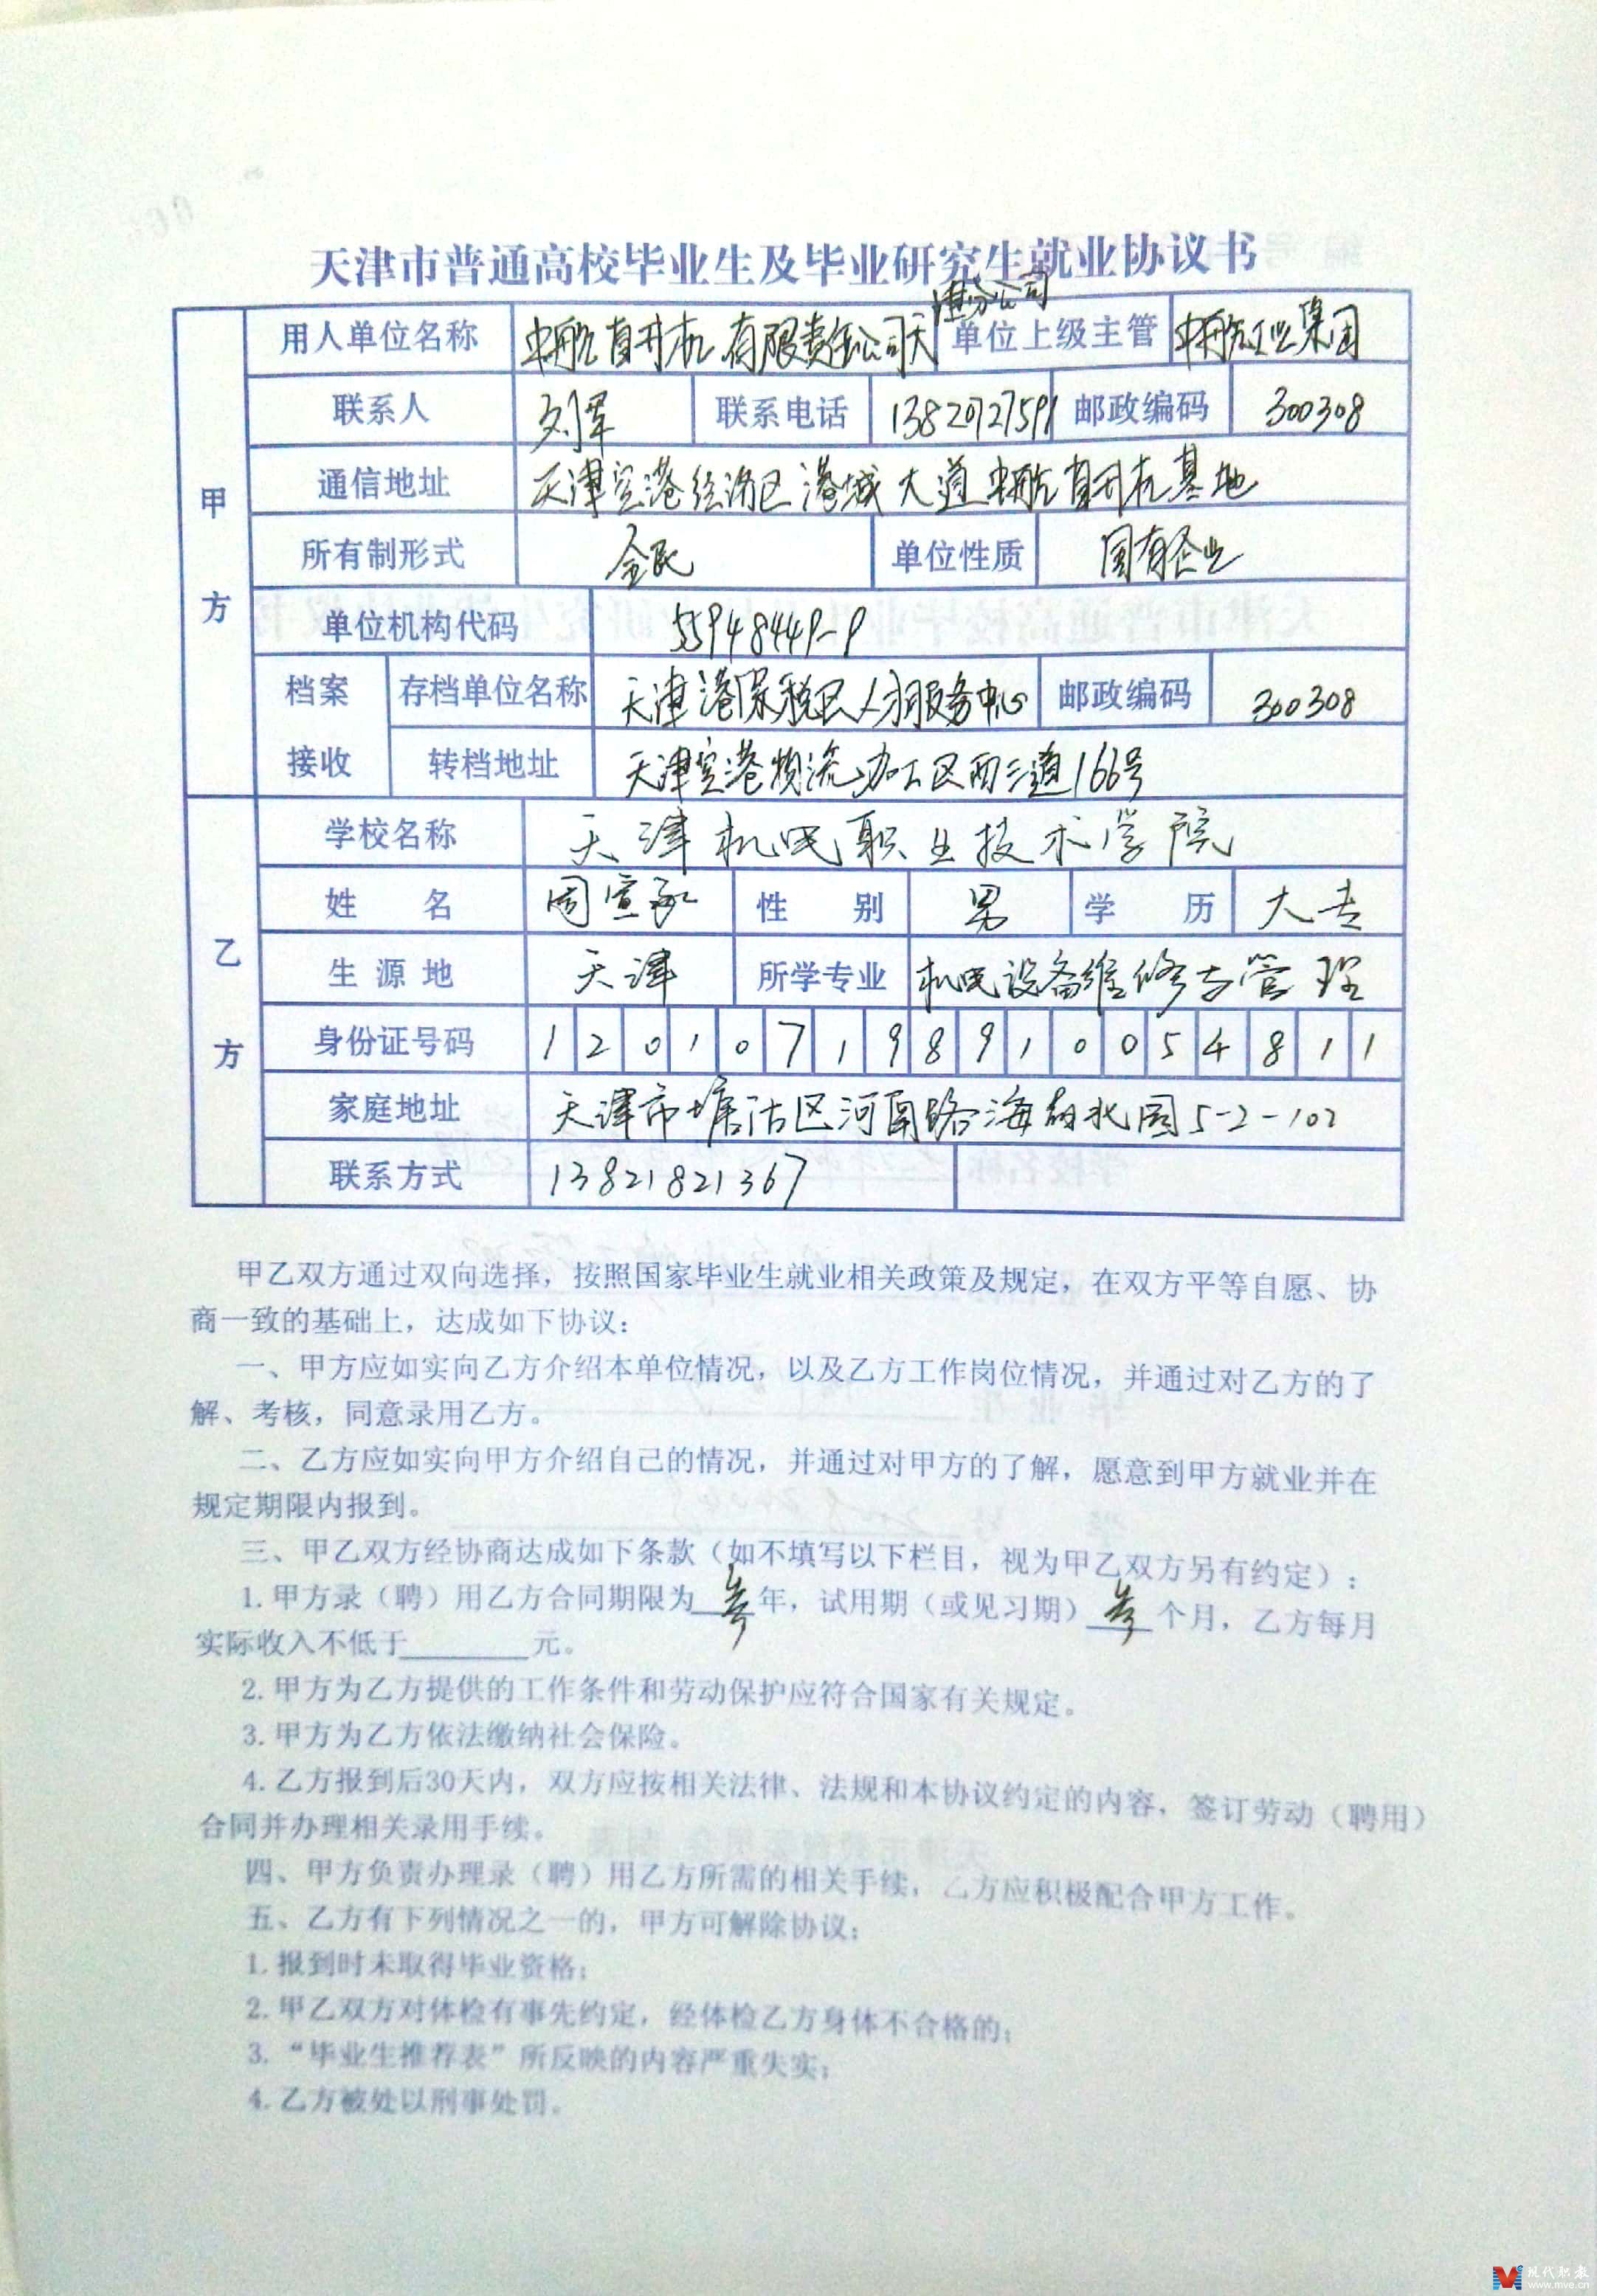 天津市普通高校毕业生及毕业研究生就业协议书
甲方
用人单位名称 中航直升机有限责任公司天津分公司 单位上级主管 中航工业集团
联系人 刘军 联系电话 13820727591 邮政编码 300308
通信地址 天津空港经济区港城大道中航直升机基地
所有制形式 全民 单位性质 国有企业
单位机构代码 55948449-9
档案接收 存档单位名称 天津港保税区人才服务中心 邮政编码 300308
转档地址 天津空港物流加工区西三道166号
乙方
学校名称 天津机电职业技术学院
姓名 周宣承 性别 男 学历 大专
生源地 天津 所学专业 机电设备维修与管理
身份证号码 120107198910054811
家庭地址 天津市塘沽区河南路海韵北园5-2-102
联系方式 13821821367
甲乙双方通过双向选择，按照国家毕业生就业相关政策及规定，在双方平等自愿、协
商一致的基础上，达成如下协议：
一、甲方应如实向乙方介绍本单位情况，以及乙方工作岗位情况，并通过对乙方的了
解、考核，同意录用乙方。
二、乙方应如实向甲方介绍自己的情况，并通过对甲方的了解，愿意到甲方就业并在
规定期限内报到。
三、甲乙双方经协商达成如下条款（如不填写以下栏目，视为甲乙双方另有约定）：
1.甲方录（聘）用乙方合同期限为叁年，试用期（或见习期）叁个月，乙方每月
实际收入不低于________元。
2.甲方为乙方提供的工作条件和劳动保护应符合国家有关规定。
3.甲方为乙方依法缴纳社会保险。
4.乙方报到后30天内，双方应按相关法律、法规和本协议约定的内容，签订劳动（聘用）
合同并办理相关录用手续。
四、甲方负责办理录（聘）用乙方所需的相关手续，乙方应积极配合甲方工作。
五、乙方有下列情况之一的，甲方可解除协议：
1.报到时未取得毕业资格；
2.甲乙双方对体检有事先约定，经体检乙方身体不合格的；
3.“毕业生推荐表”所反映的内容严重失实；
4.乙方被处以刑事处罚。
现代职教
www.mve.cn